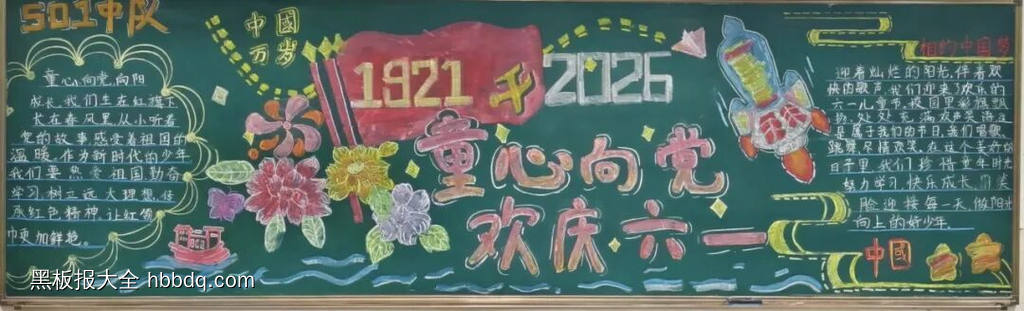 501中队
童心向党,向阳
成长,我们生在红旗下
长在春风里,从小听着
党的故事感受着祖国的
温暖。作为新时代的少年
我们要热爱祖国勤奋
学习树立远大理想,传
承红色精神,让红领
巾更加鲜艳。
中國
万岁
1921
2026
童心向党
欢庆六一
相约中国梦
迎着灿烂的阳光,伴着欢
快的歌声,我们迎来了欢乐的
六一儿童节,校园里彩旗飘
扬,处处充满欢声笑语这
是属于我们的节日,我们唱歌
跳舞尽情欢笑,在这个美好的
日子里,我们珍惜童年时光
努力学习,快乐成长,用笑
脸迎接每一天,做阳光
向上的好少年。
中國
黑板报大全 hbbdq.com